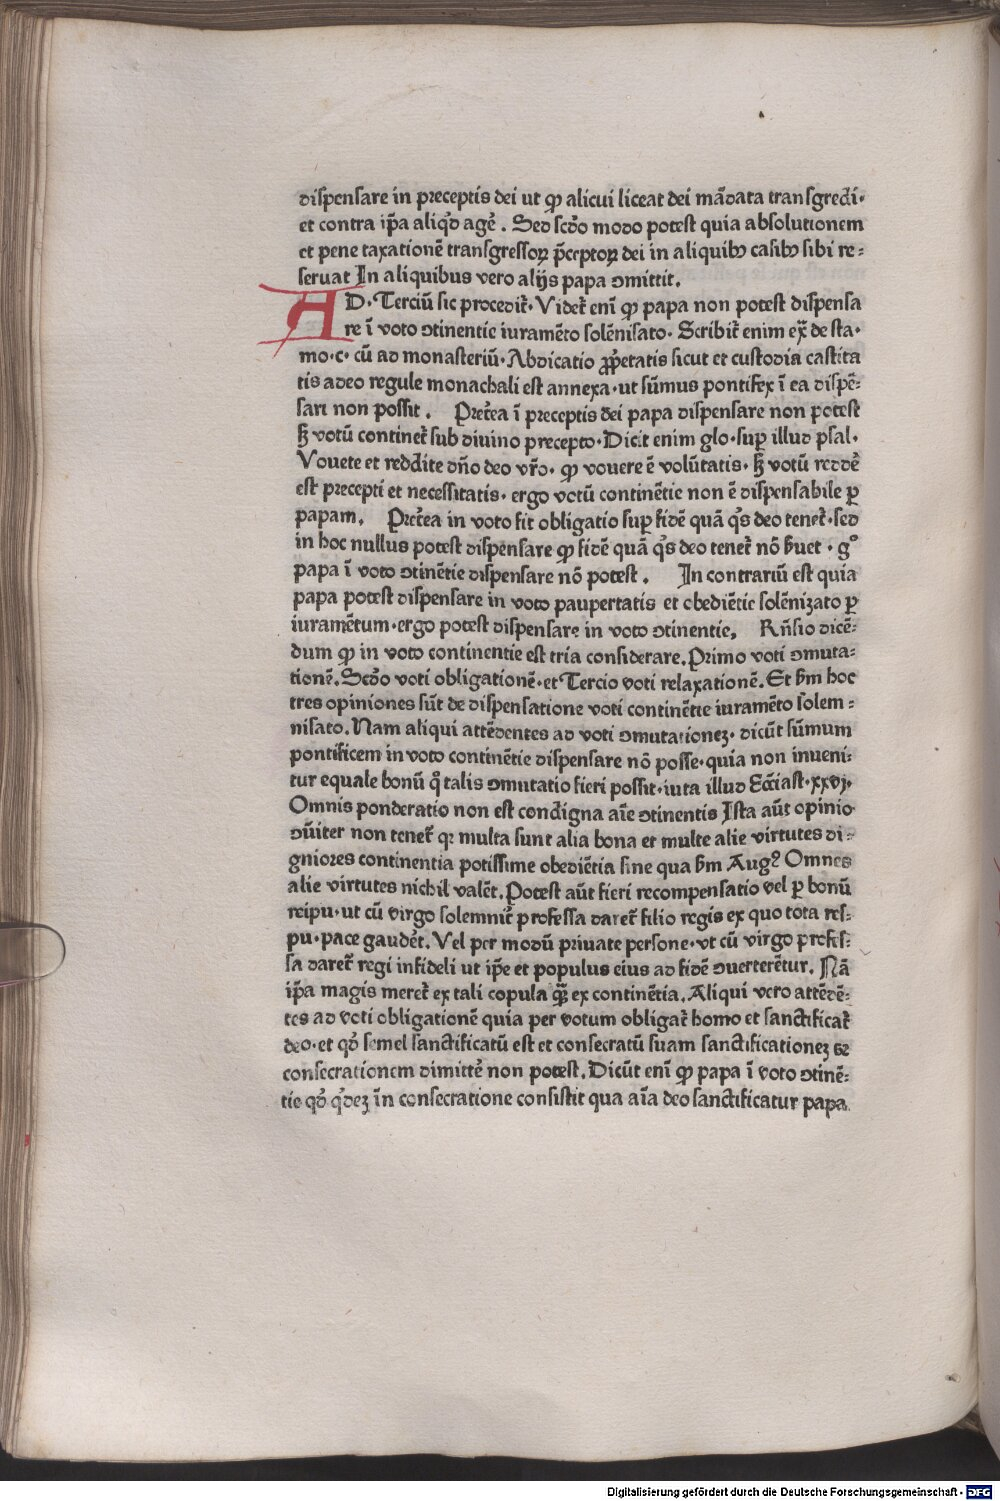 dispensare in preceptis dei ut ꝙ alicui liceat dei mādata transgredi·
et contra ip̄a aliq̇d agē . Sed scd̄o modo potest quia absolutionem
et pene taxationē transgressoꝝ p̄ceptoꝝ dei in aliquibꝫ casibꝫ sibi re⸗
seruat In aliquibus vero alijs papa ꝯmittit.
AD·Terciū sic procedit̄· Videt̄ eni̅ ꝙ papa non potest dispensa
re ī voto ꝯtinentie iuramēto solēnisato· Scribit̄ enim ex̄ de sta·
mo·c· cū ad monasteriū·Abdicatio ꝓprietatis sicut et custodia castita
tis adeo regule monachali est annexa·ut sūmus pontifex ī ea dispē⸗
sari non possit . Pret̄ea ī preceptis dei papa dispensare non potest
ꝫ votū continet̄ sub diuino precepto·Dicit enim glo·suꝑ illud psal·
Vouete et reddite dn̄o deo vr̄o· ꝙ vouere ē volūtatis· ꝫ votū reddē
est precepti et necessitatis· ergo votū continētie non ē dispensabile ꝑ
papam. Pret̄ea in voto fit obligatio suꝑ fidē quā q̇s deo tenet̄·sed
in hoc nullus potest dispensare ꝙ fidē quā q̇s deo tenet̄ nō ẜuet · gͦ
papa ī voto ꝯtinētie dispensare nō potest . In contrariū est quia
papa potest dispensare in voto paupertatis et obediētie solēnizato ꝑ
iuramētum·ergo potest dispensare in voto ꝯtinentie. Rn̄sio dicē⸗
dum ꝙ in voto continentie est tria considerare.Primo voti ꝯmuta⸗
tionē.Scd̄o voti obligationē·et Tercio voti relaxationē.Et ẜm hoc
tres opiniones sūt de dispensatione voti continētie iuramēto solem⸗
nisato.Nam aliqui attēdentes ad voti ꝯmutationeꝫ· dicūt sūmum
pontificem in voto continētie dispensare nō posse·quia non inueni⸗
tur equale bonū q̇ talis ꝯmutatio fieri possit·iuta illud Ecc̄iast·xxvj·
Omnis ponderatio non est condigna aīe ꝯtinentis Ista aūt opinio
ꝯūiter non tenet̄ qꝛ multa sunt alia bona et multe alie virtutes di⸗
gniores continentia potissime obediētia sine qua ẜm Augꝰ Omnes
alie virtutes nichil valēt.Potest aūt fieri recompensatio vel ꝑ bonū
reipu·ut cū virgo solemnit̄ professa daret̄ filio regis ex quo tota res⸗
pu·pace gaudēt.Vel per modū priuate persone·vt cū virgo profes⸗
sa daret̄ regi infideli ut ip̄e et populus eius ad fidē ꝯuerterētur. Nā
ip̄a magis meret̄ ex tali copula q̄ꝫ ex continētia.Aliqui vero attēdē⸗
tes ad voti obligationē quia per votum obligat̄ homo et sanctificat̄
deo·et qd̄ semel sanctificatū est et consecratū suam sanctificationeꝫ ꝫ
consecrationem dimittē non potest.Dicūt eni̅ ꝙ papa ī voto ꝯtinē⸗
tie qd̄ q̇deꝫ īn consecratione consistit qua aīa deo sanctificatur papa
Digitalisierung gefördert durch die Deutsche Forschungsgemeinschaft · DFG